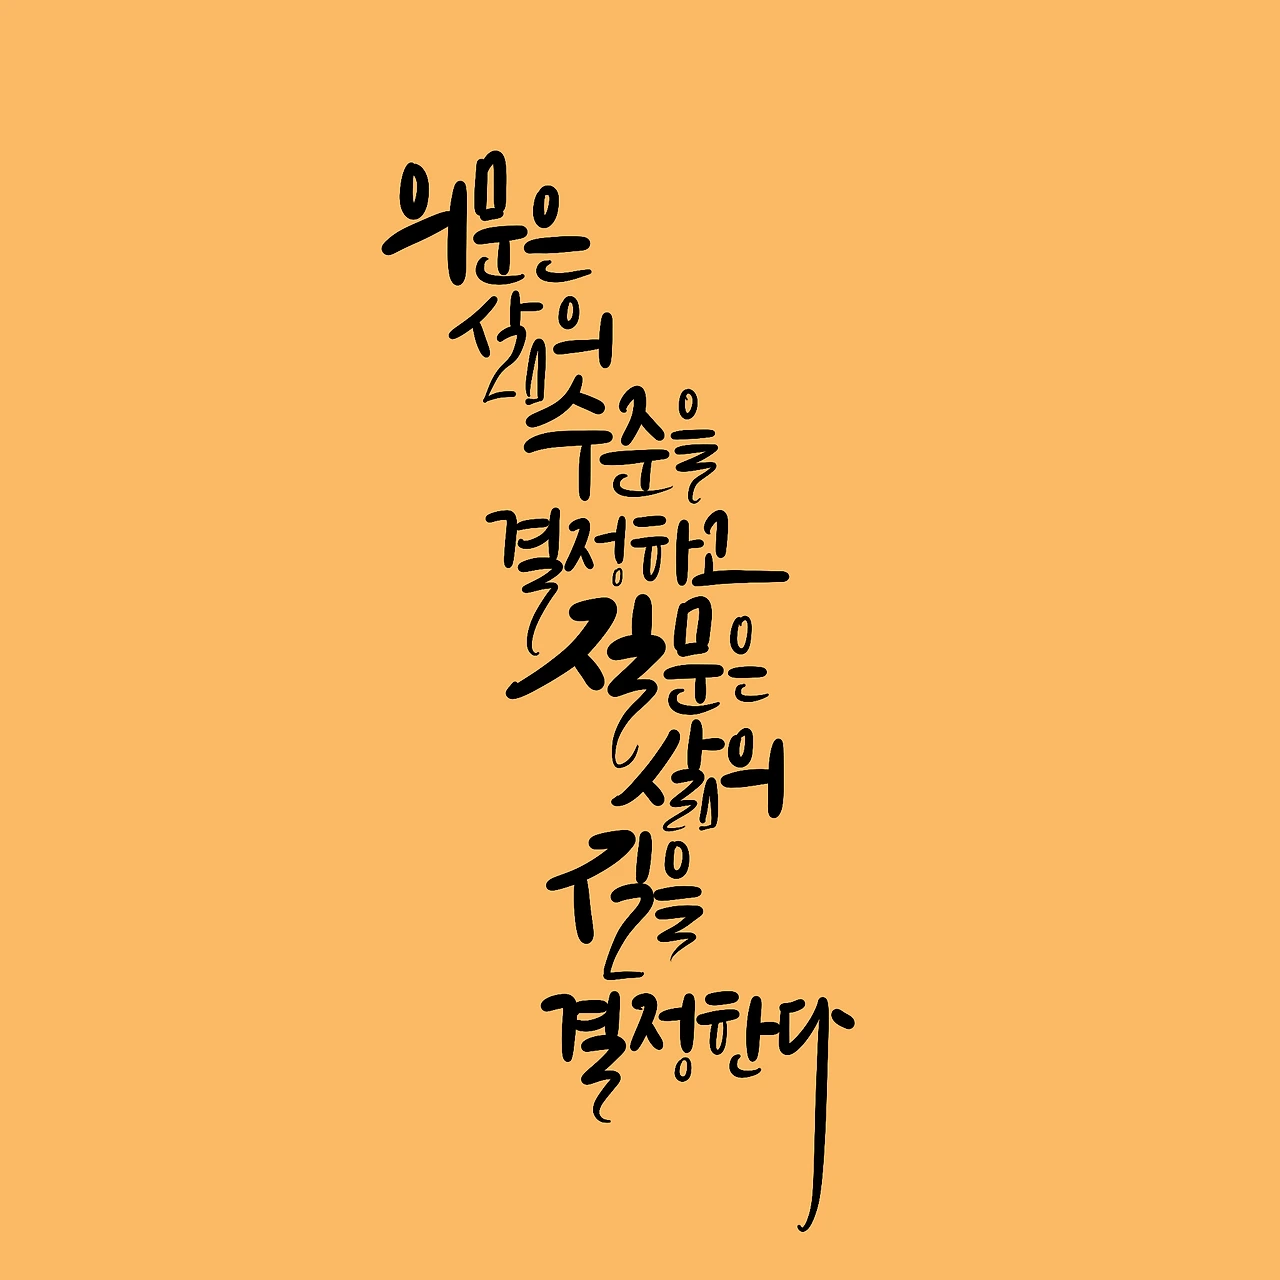 의문은
삶의
수준을
결정하고
질문은
삶의
길을
결정한다